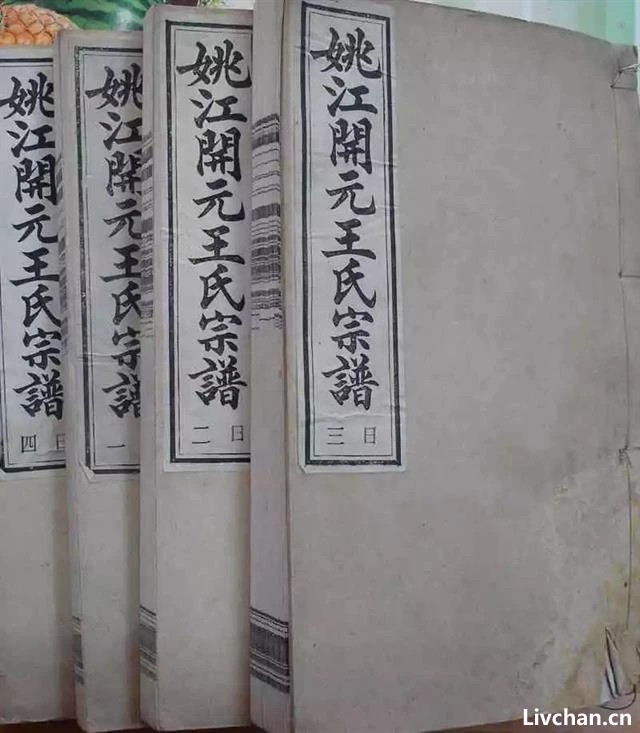 姚江開元王氏宗譜
四 日
姚江開元王氏宗譜
一
姚江開元王氏宗譜
二 日
姚江開元王氏宗譜
三 日
Livchan.cn